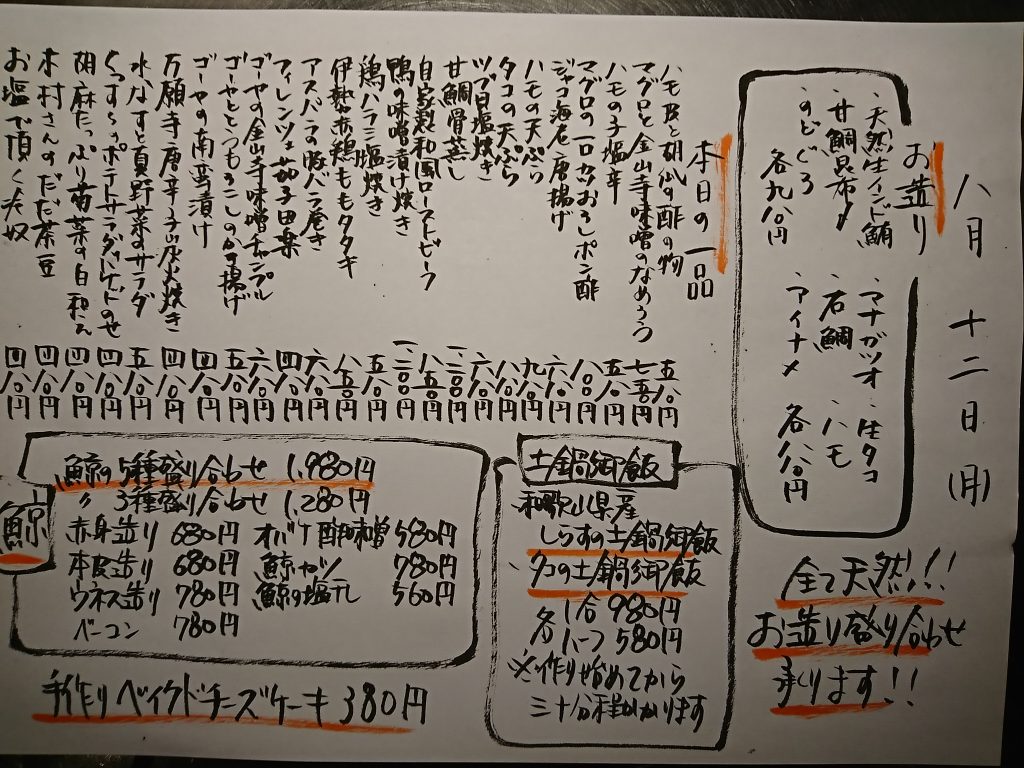 八月 十二日(月)
お造り
・天然生インド鮪
・甘鯛昆布〆
・のどぐろ
各九八〇円
・マナガツオ ・生タコ
・石鯛 ・ハモ
・アイナメ 各八八〇円
全て天然!!
お造り盛り合わせ
承ります!!
本日の一品
ハモ皮と胡瓜の酢の物 五八〇円
マグロと金山寺味噌のなめろう 七五〇円
ハモの子塩辛 五八〇円
マグロの一口カツおろしポン酢 八八〇円
ジャコ海老唐揚げ 六八〇円
ハモの天ぷら 九八〇円
タコの天ぷら 八八〇円
ツブ貝塩焼き 六八〇円
甘鯛骨蒸し
自家製和風ローストビーフ
鴨の味噌漬け焼き
鶏ハラミ塩焼き 五八〇円
伊勢赤鶏ももタタキ 八五〇円
アスパラの豚バラ巻き 六八〇円
フィレンツェ茄子田楽 四八〇円
ゴーヤの金山寺味噌チャンプル 六八〇円
ゴーヤととうもろこしのかき揚げ 五八〇円
ゴーヤの南蛮漬け 四八〇円
万願寺唐辛子炭火焼き 四八〇円
水なすと真野菜のサラダ 五八〇円
くんずらポテトサラダ のせ 四八〇円
胡麻たっぷり菊菜の白和え 四八〇円
木村さんのだだ茶豆 四八〇円
お塩で頂く冷奴 四八〇円
土鍋御飯
和歌山県産
しらすの土鍋御飯
・タコの土鍋御飯
各 1合 980円
ハーフ 580円
※作り始めてから
三十分程かかります
鯨
鯨の5種盛り合わせ 1,980円
〃 3種盛り合わせ 1,280円
赤身造り 680円 オバケ酢味噌 580円
本皮造り 680円 鯨カツ 780円
ウネス造り 780円 鯨の塩干し 560円
ベーコン 780円
手作りベイクドチーズケーキ 380円